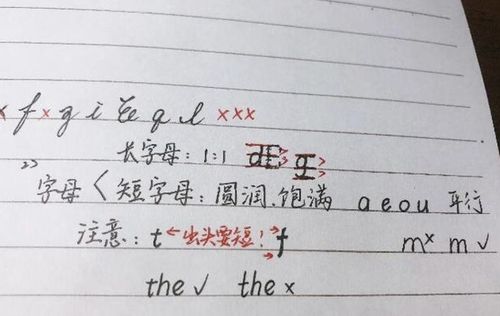 x f x g i q l xxx
长字母：1:1 d g
2) 字母 < 短字母：圆润、饱满 a e o u 平行
注意：t ←出头要短！→ f m x m ✓
the ✓ the x